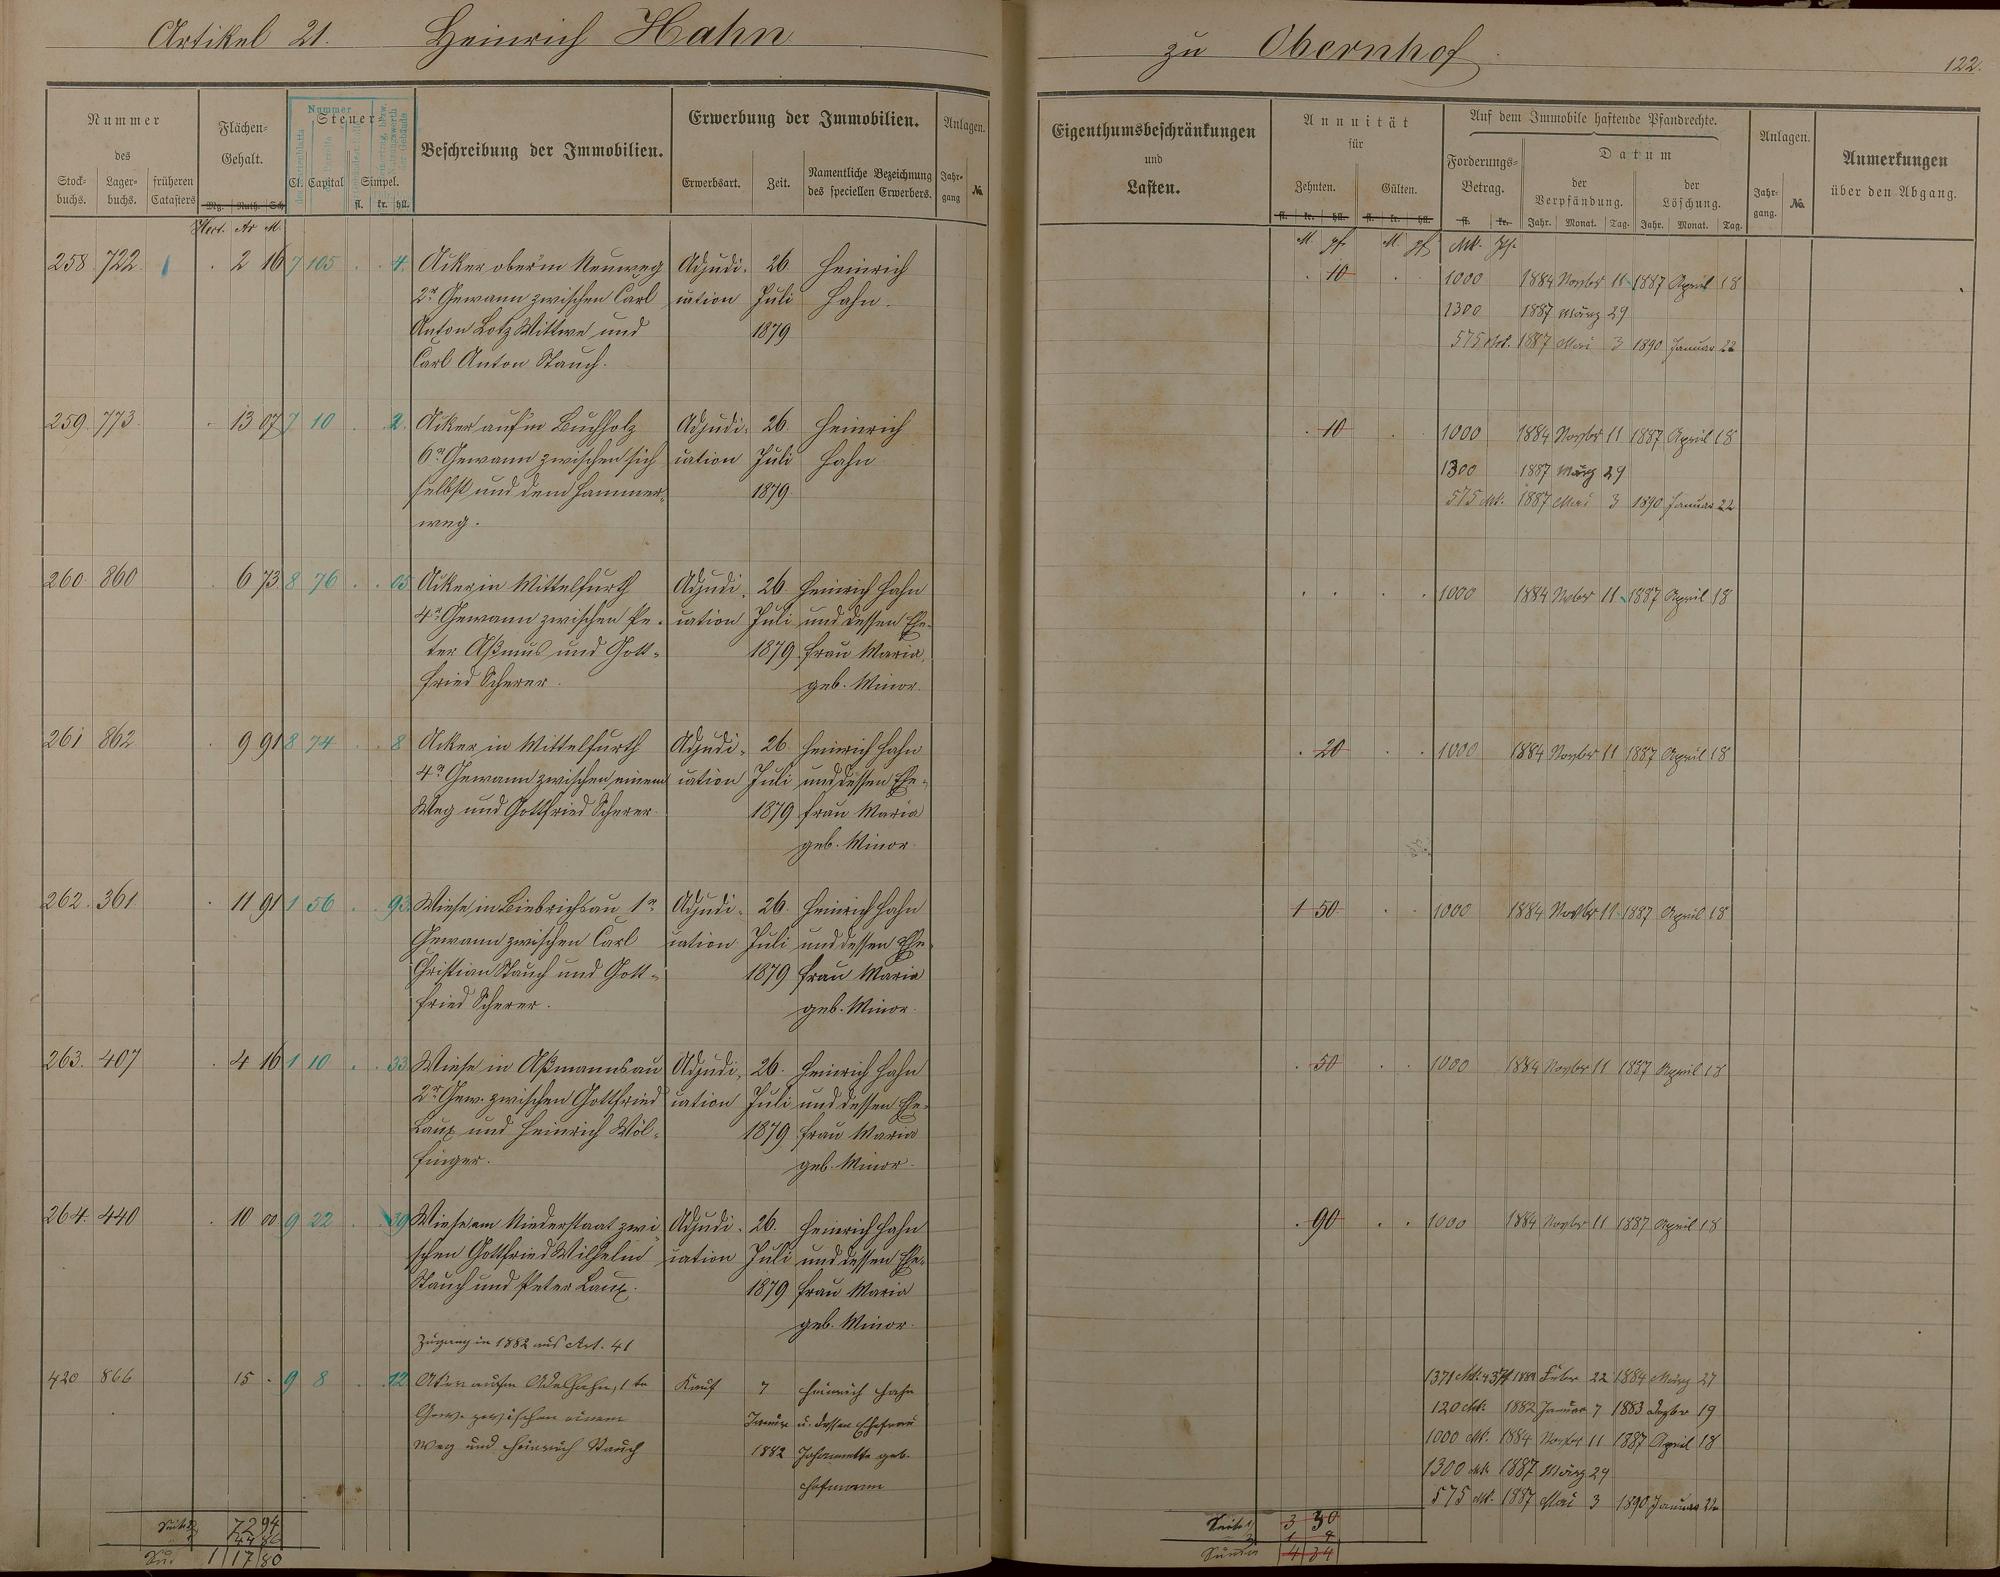 Artikel 21. Heinrich Hahn
zu Obernhof
122.
Nummer
des
Stock-buchs. Lager-buchs. früheren Catasters
Flächen-Gehalt.
Mg. Ruth. Sch.
Hect. Ar M.
Nummer
Steuer-
Cl. Capital Simpel.
fl. kr. hll.
Beschreibung der Immobilien.
Erwerbung der Immobilien.
Erwerbsart. Zeit. Namentliche Bezeichnung des speciellen Erwerbers.
Anlagen.
Jahrgang No.
Eigenthumsbeschränkungen
und
Lasten.
Annuität
für
Zehnten. Gülten.
fl. kr. hll. fl. kr. hll.
M. pf. M. pf.
Auf dem Immobile haftende Pfandrechte.
Forderungs-Betrag.
fl. kr.
Mk. Pf.
Datum
der Verpfändung. der Löschung.
Jahr. Monat. Tag. Jahr. Monat. Tag.
Anlagen.
Jahr-gang. No.
Anmerkungen
über den Abgang.
258 722 . 2 16 7 105 . . 4. Acker oberm Neuweg Adjudi- 26 Heinrich
2r Gewann zwischen Carl cation Juli Hahn.
Anton Lotz Wittwe und 1879
Carl Anton Stauch.
. 10 . . 1000 1884 Novbr 11 1887 April 18
1300 1887 März 29
575 Mk. 1887 Mai 3 1890 Januar 22
259. 773. . 13 07 7 10 . . 2. Acker auf'm Buchholz Adjudi- 26. Heinrich
6r Gewann zwischen sich cation Juli Hahn
selbst und dem Hammer- 1879
weg.
. 10 . . 1000 1884 Novbr 11 1887 April 18
1300 1887 März 29
575 Mk. 1887 Mai 3 1890 Januar 22
260. 860 . 6 73 8 76 . . 05 Acker in Mittelfurth Adjudi- 26. Heinrich Hahn
4r Gewann zwischen Pe- cation Juli und dessen Ehe-
ter Aßmus und Gott- 1879 frau Maria,
fried Scherer. geb. Minor.
. . . . 1000 1884 Nvbr 11 1887 April 18
261 862 . 9 91 8 74 . . 8 Acker in Mittelfurth Adjudi- 26 Heinrich Hahn
4r Gewann zwischen einem cation Juli und dessen Ehe-
Weg und Gottfried Scherer. 1879 frau Maria
geb. Minor.
. 20 . . 1000 1884 Novbr 11 1887 April 18
262. 361 . 11 91 1 56 . . 93. Wiese in Biebrichsau 1r Adjudi- 26. Heinrich Hahn
Gewann zwischen Carl cation Juli und dessen Ehe-
Christian Stauch und Gott- 1879 frau Maria
fried Scherer. geb. Minor.
1 50 . . 1000 1884 Novbr 11 1887 April 18
263. 407 . 4 16 1 10 . . 33 Wiese in Aßmannsau Adjudi- 26. Heinrich Hahn
2r Gew. zwischen Gottfried cation Juli und dessen Ehe-
Laux und Heinrich Wöl- 1879 frau Maria
finger. geb. Minor.
. 50 . . 1000 1884 Novbr 11 1887 April 18
264. 440 . 10 00 9 22 . . 39 Wiese am Niederstaat zwi- Adjudi- 26. Heinrich Hahn
schen Gottfried Wilhelm cation Juli und dessen Ehe-
Stauch und Peter Laux. 1879 frau Maria
geb. Minor.
. 90 . . 1000 1884 Novbr 11 1887 April 18
Zugang in 1882 aus Art. 41
420 866 15 . 9 8 . . 12 Acker auf'm Adelhahn, 1te Kauf 7 Heinrich Hahn
Gew. zwischen einem Januar u. dessen Ehefrau
Weg und Heinrich Stauch 1882 Johannette geb.
Hofmann
22 1884 März 27
120 Mk. 1882 Januar 7 1883 Dezbr 19
1000 Mk. 1884 Novbr 11 1887 April 18
1300 Mk. 1887 März 29
575 Mk. 1887 Mai 3 1890 Januar 22
72 94
44 86
Su. 1 17 80
Seite 1 3 30
1 4
Summa 4 34